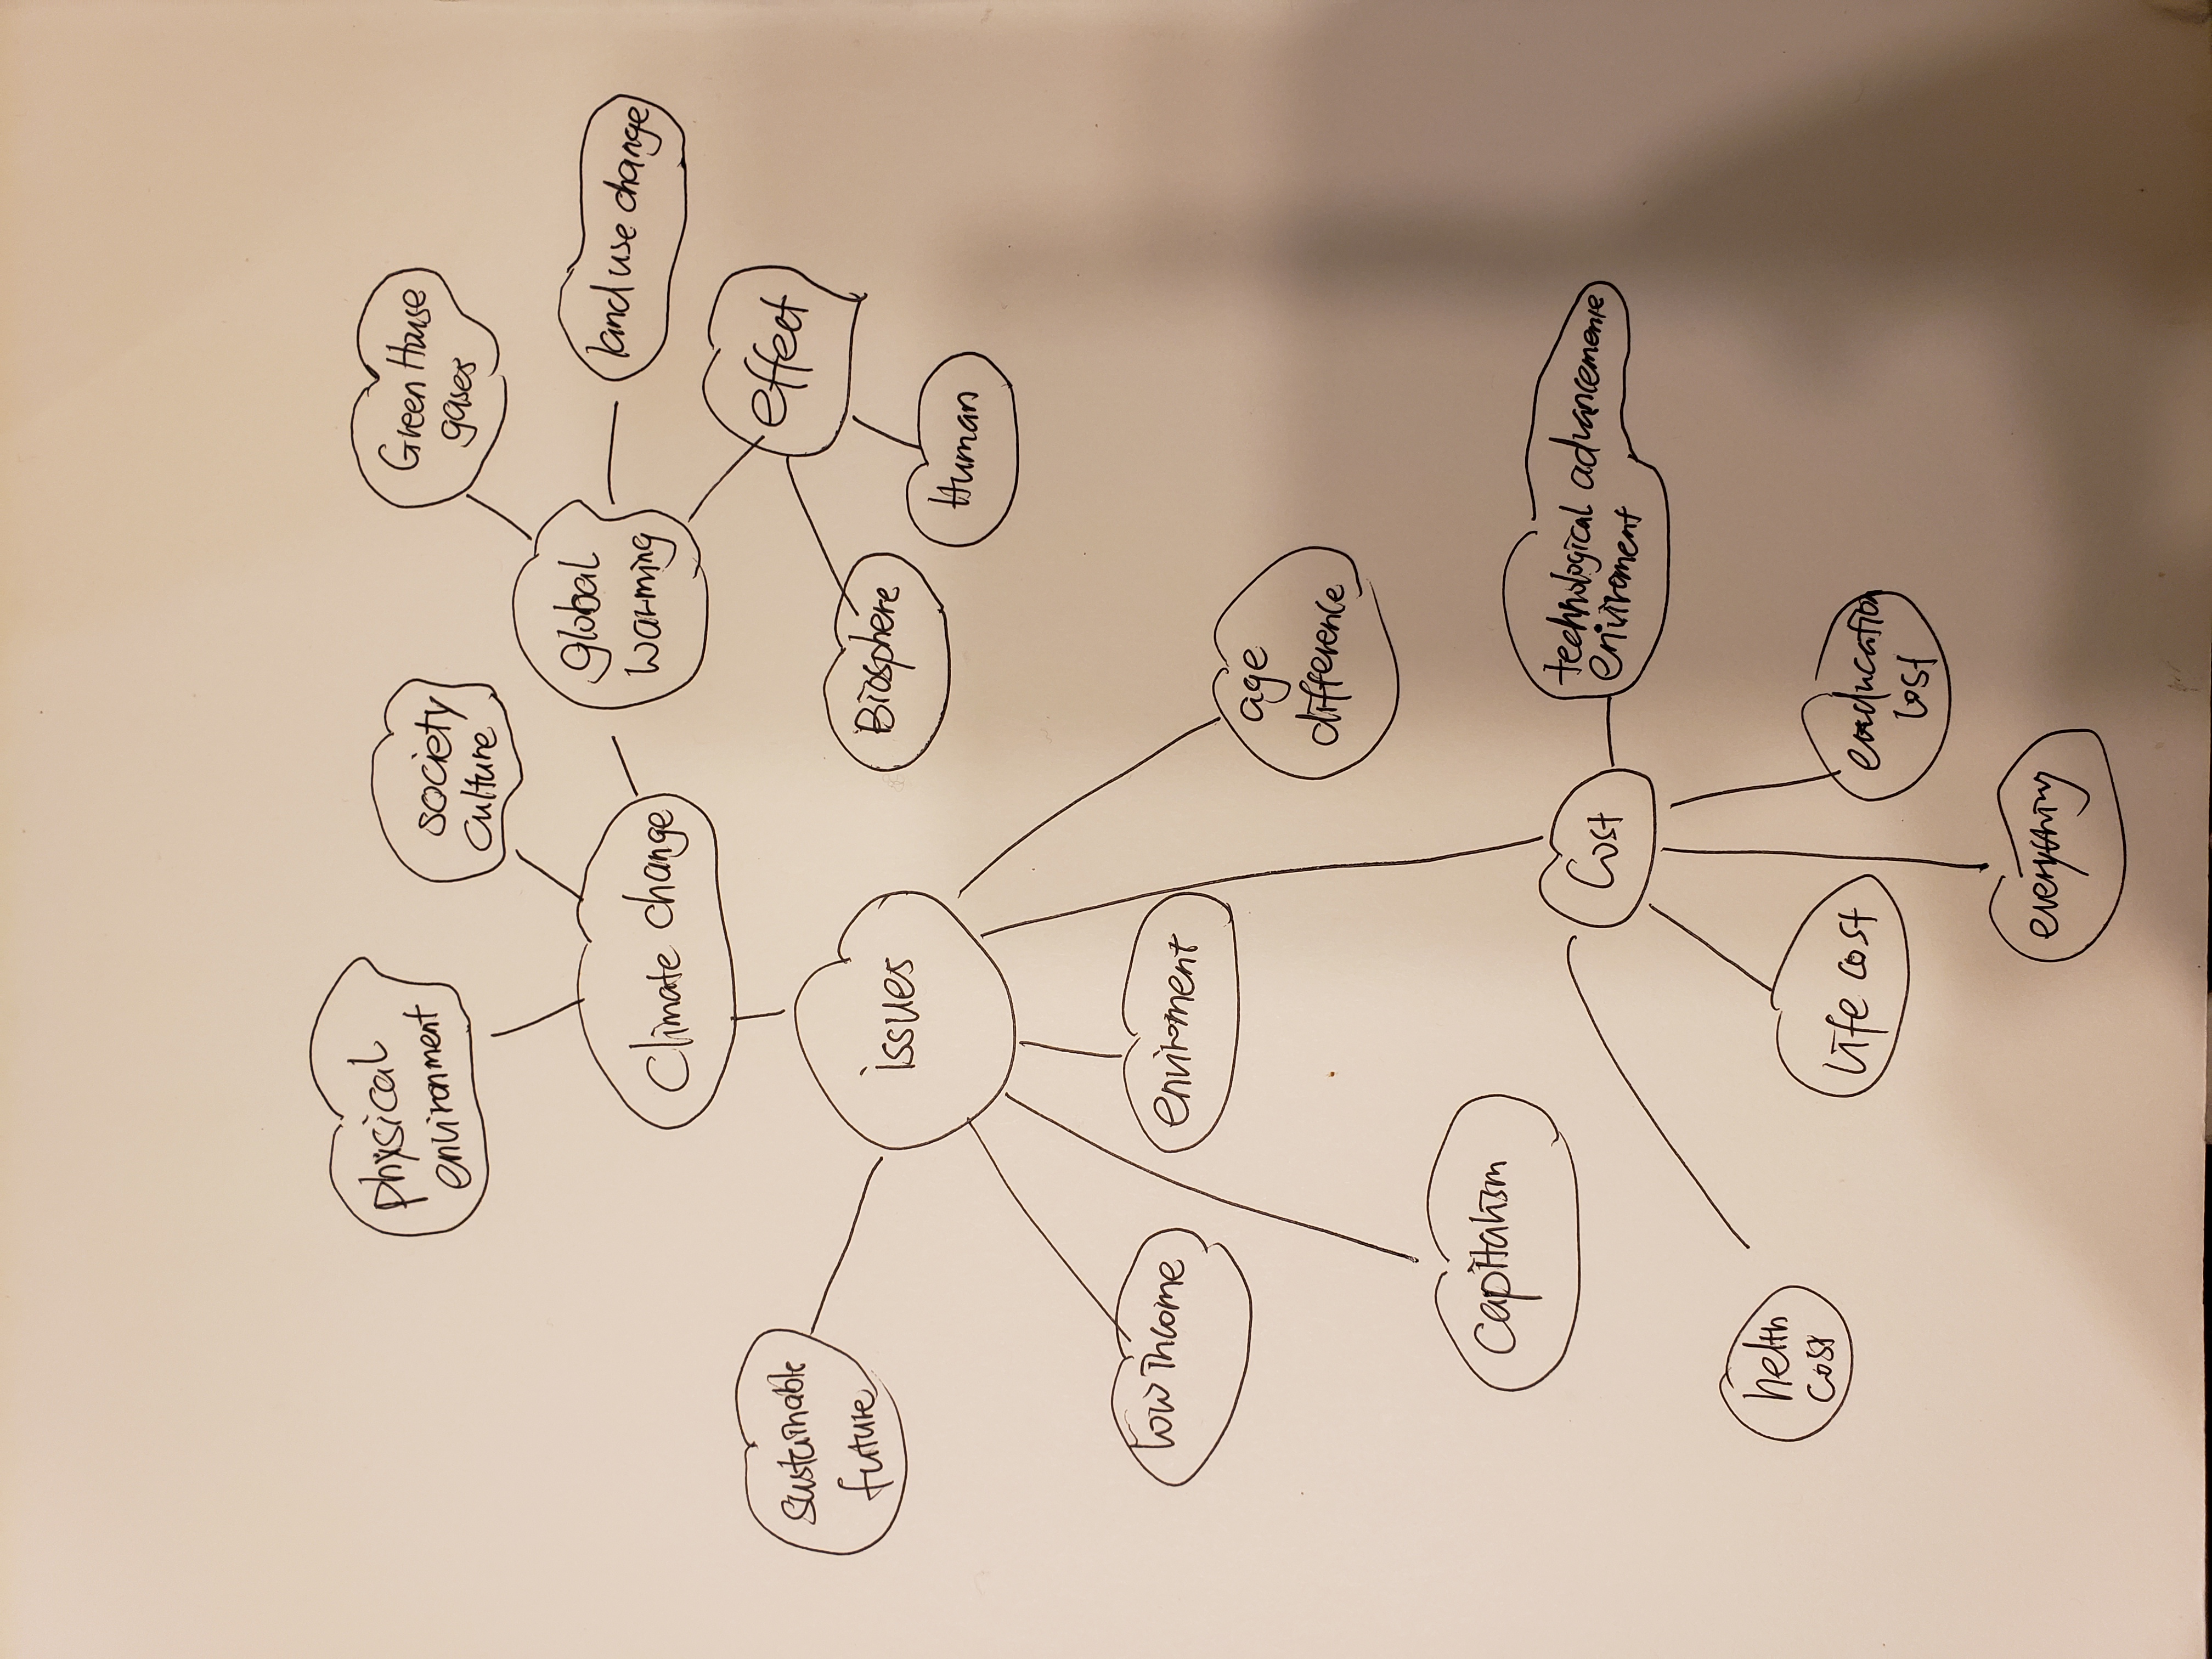 physical
environment
society
culture
Green House
gases
global
warming
land use change
Climate change
effect
sustainable
future
issues
Biosphere
Human
low income
enviroment
age
difference
capitalism
Cost
technological advancemente
enviroment
helth
cost
life cost
eaducation
cost
everything